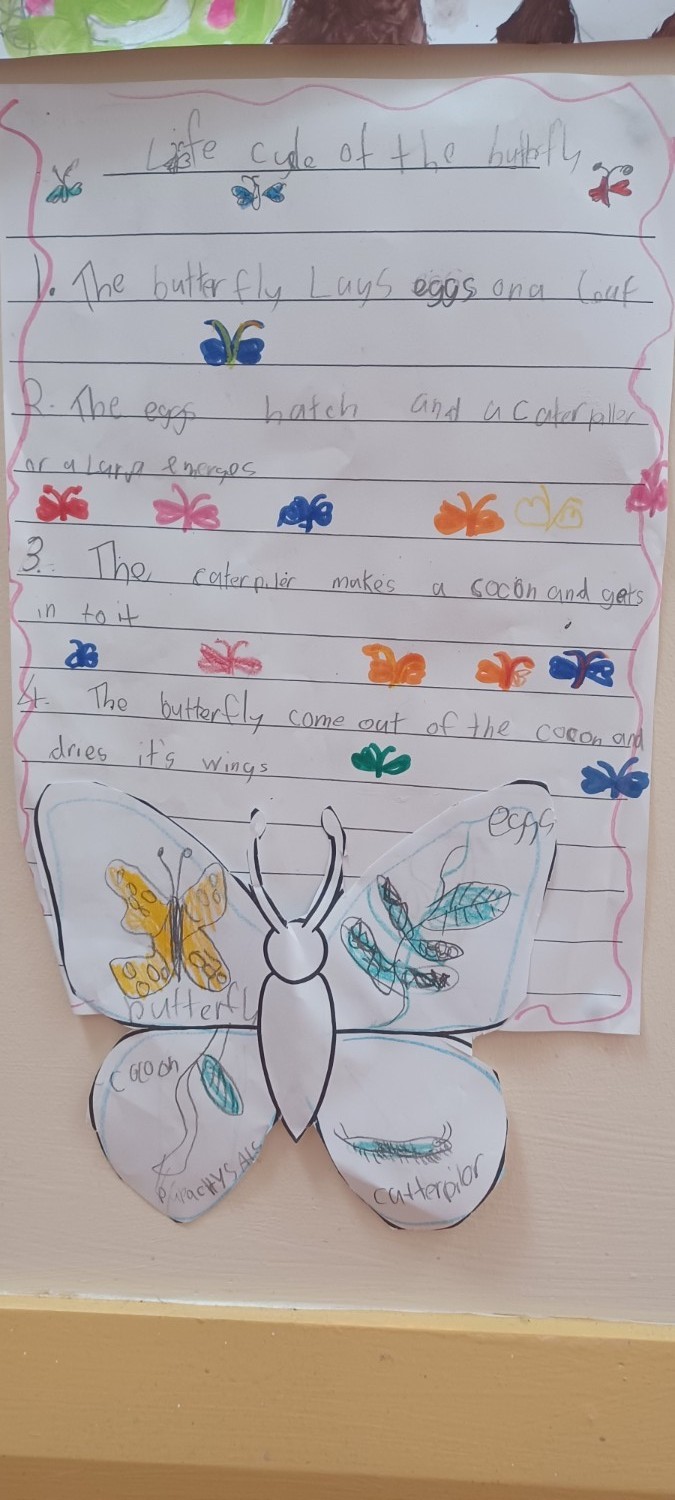 Life cycle of the buttrfly
1. The butterfly Lays eggs on a leaf
2. The eggs hatch and a caterpiler
or a Larva emerges
3. The caterpiler makes a cocon and gets
in to it
4. The butterfly come out of the cocon and
dries it's wings
eggs
butterfly
cocoon
catterpilor